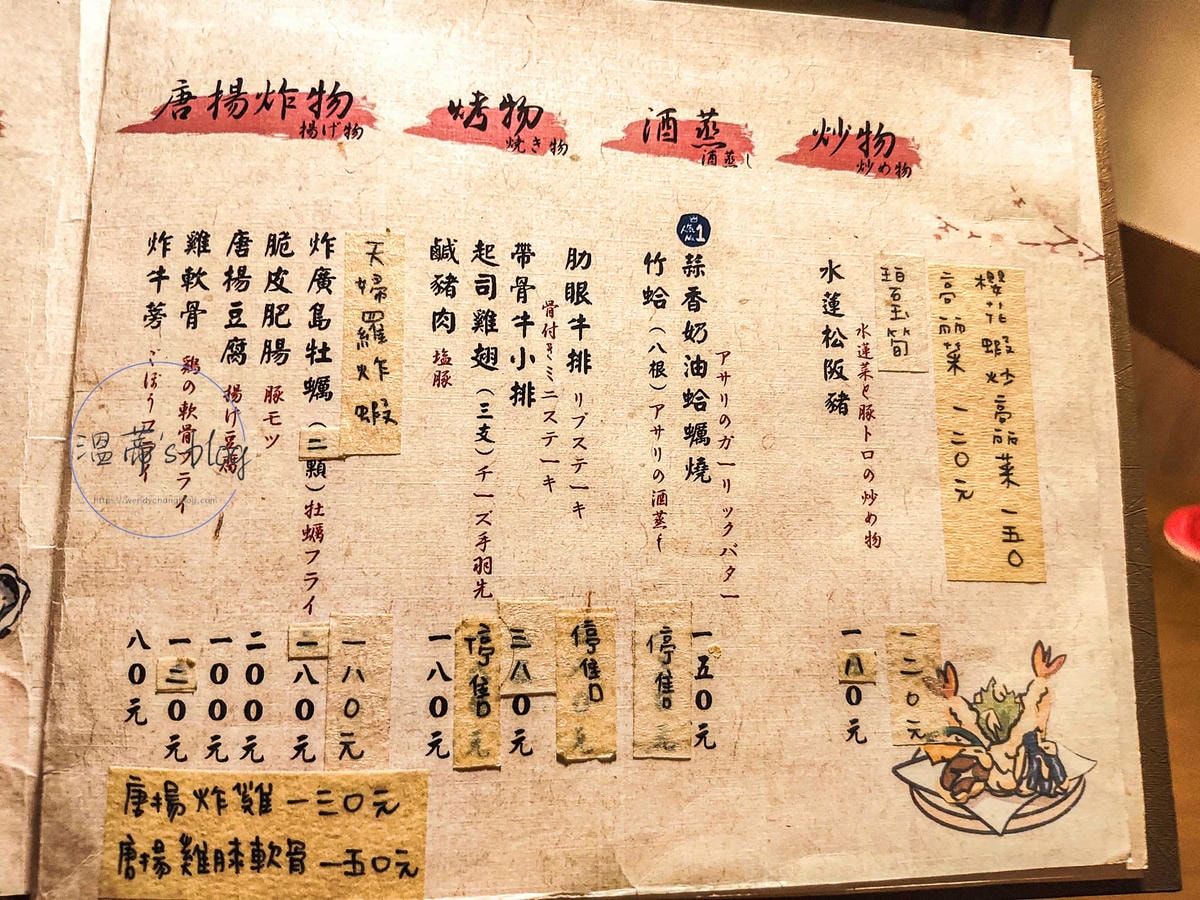 唐揚炸物
揚げ物
烤物
焼き物
酒蒸
酒蒸し
炒物
炒め物
櫻花蝦炒高麗菜 一五〇
高麗菜 一二〇元
碧玉筍
一二〇元
水蓮菜と豚トロの炒め物
水蓮松阪豬
一八〇元
アサリのガーリックバター
No.1
蒜香奶油蛤蠣燒
一五〇元
竹蛤（八根）アサリの酒蒸し
停售
肋眼牛排 リブステーキ
停售
骨付きミニステーキ
帶骨牛小排
三八〇元
起司雞翅（三支）チーズ手羽先
停售
鹹豬肉 塩豚
一八〇元
天婦羅炸蝦
一八〇元
炸廣島牡蠣（二顆）牡蠣フライ
二八〇元
脆皮肥腸 豚モツ
二〇〇元
唐揚豆腐 揚げ豆腐
一〇〇元
雞軟骨 鶏の軟骨フライ
一三〇元
炸牛蒡 ごぼうフライ
八〇元
唐揚炸雞 一三〇元
唐揚雞膝軟骨 一五〇元
溫蒂's blog
https://wendychangblog.com